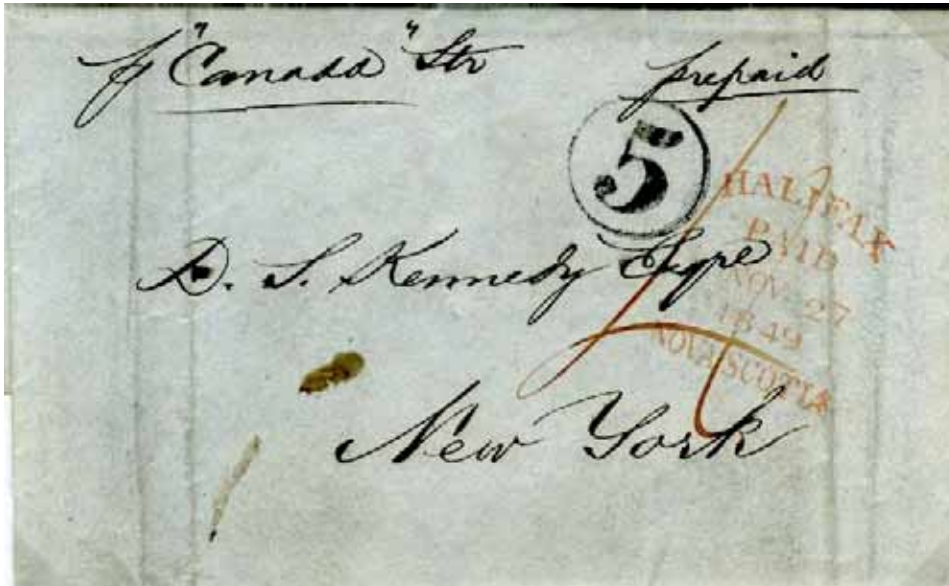 "Canada" Str
prepaid
5
HALIFAX
PAID
NOV 27
1849
NOVA SCOTIA
D. S. Kennedy Esqre
New York